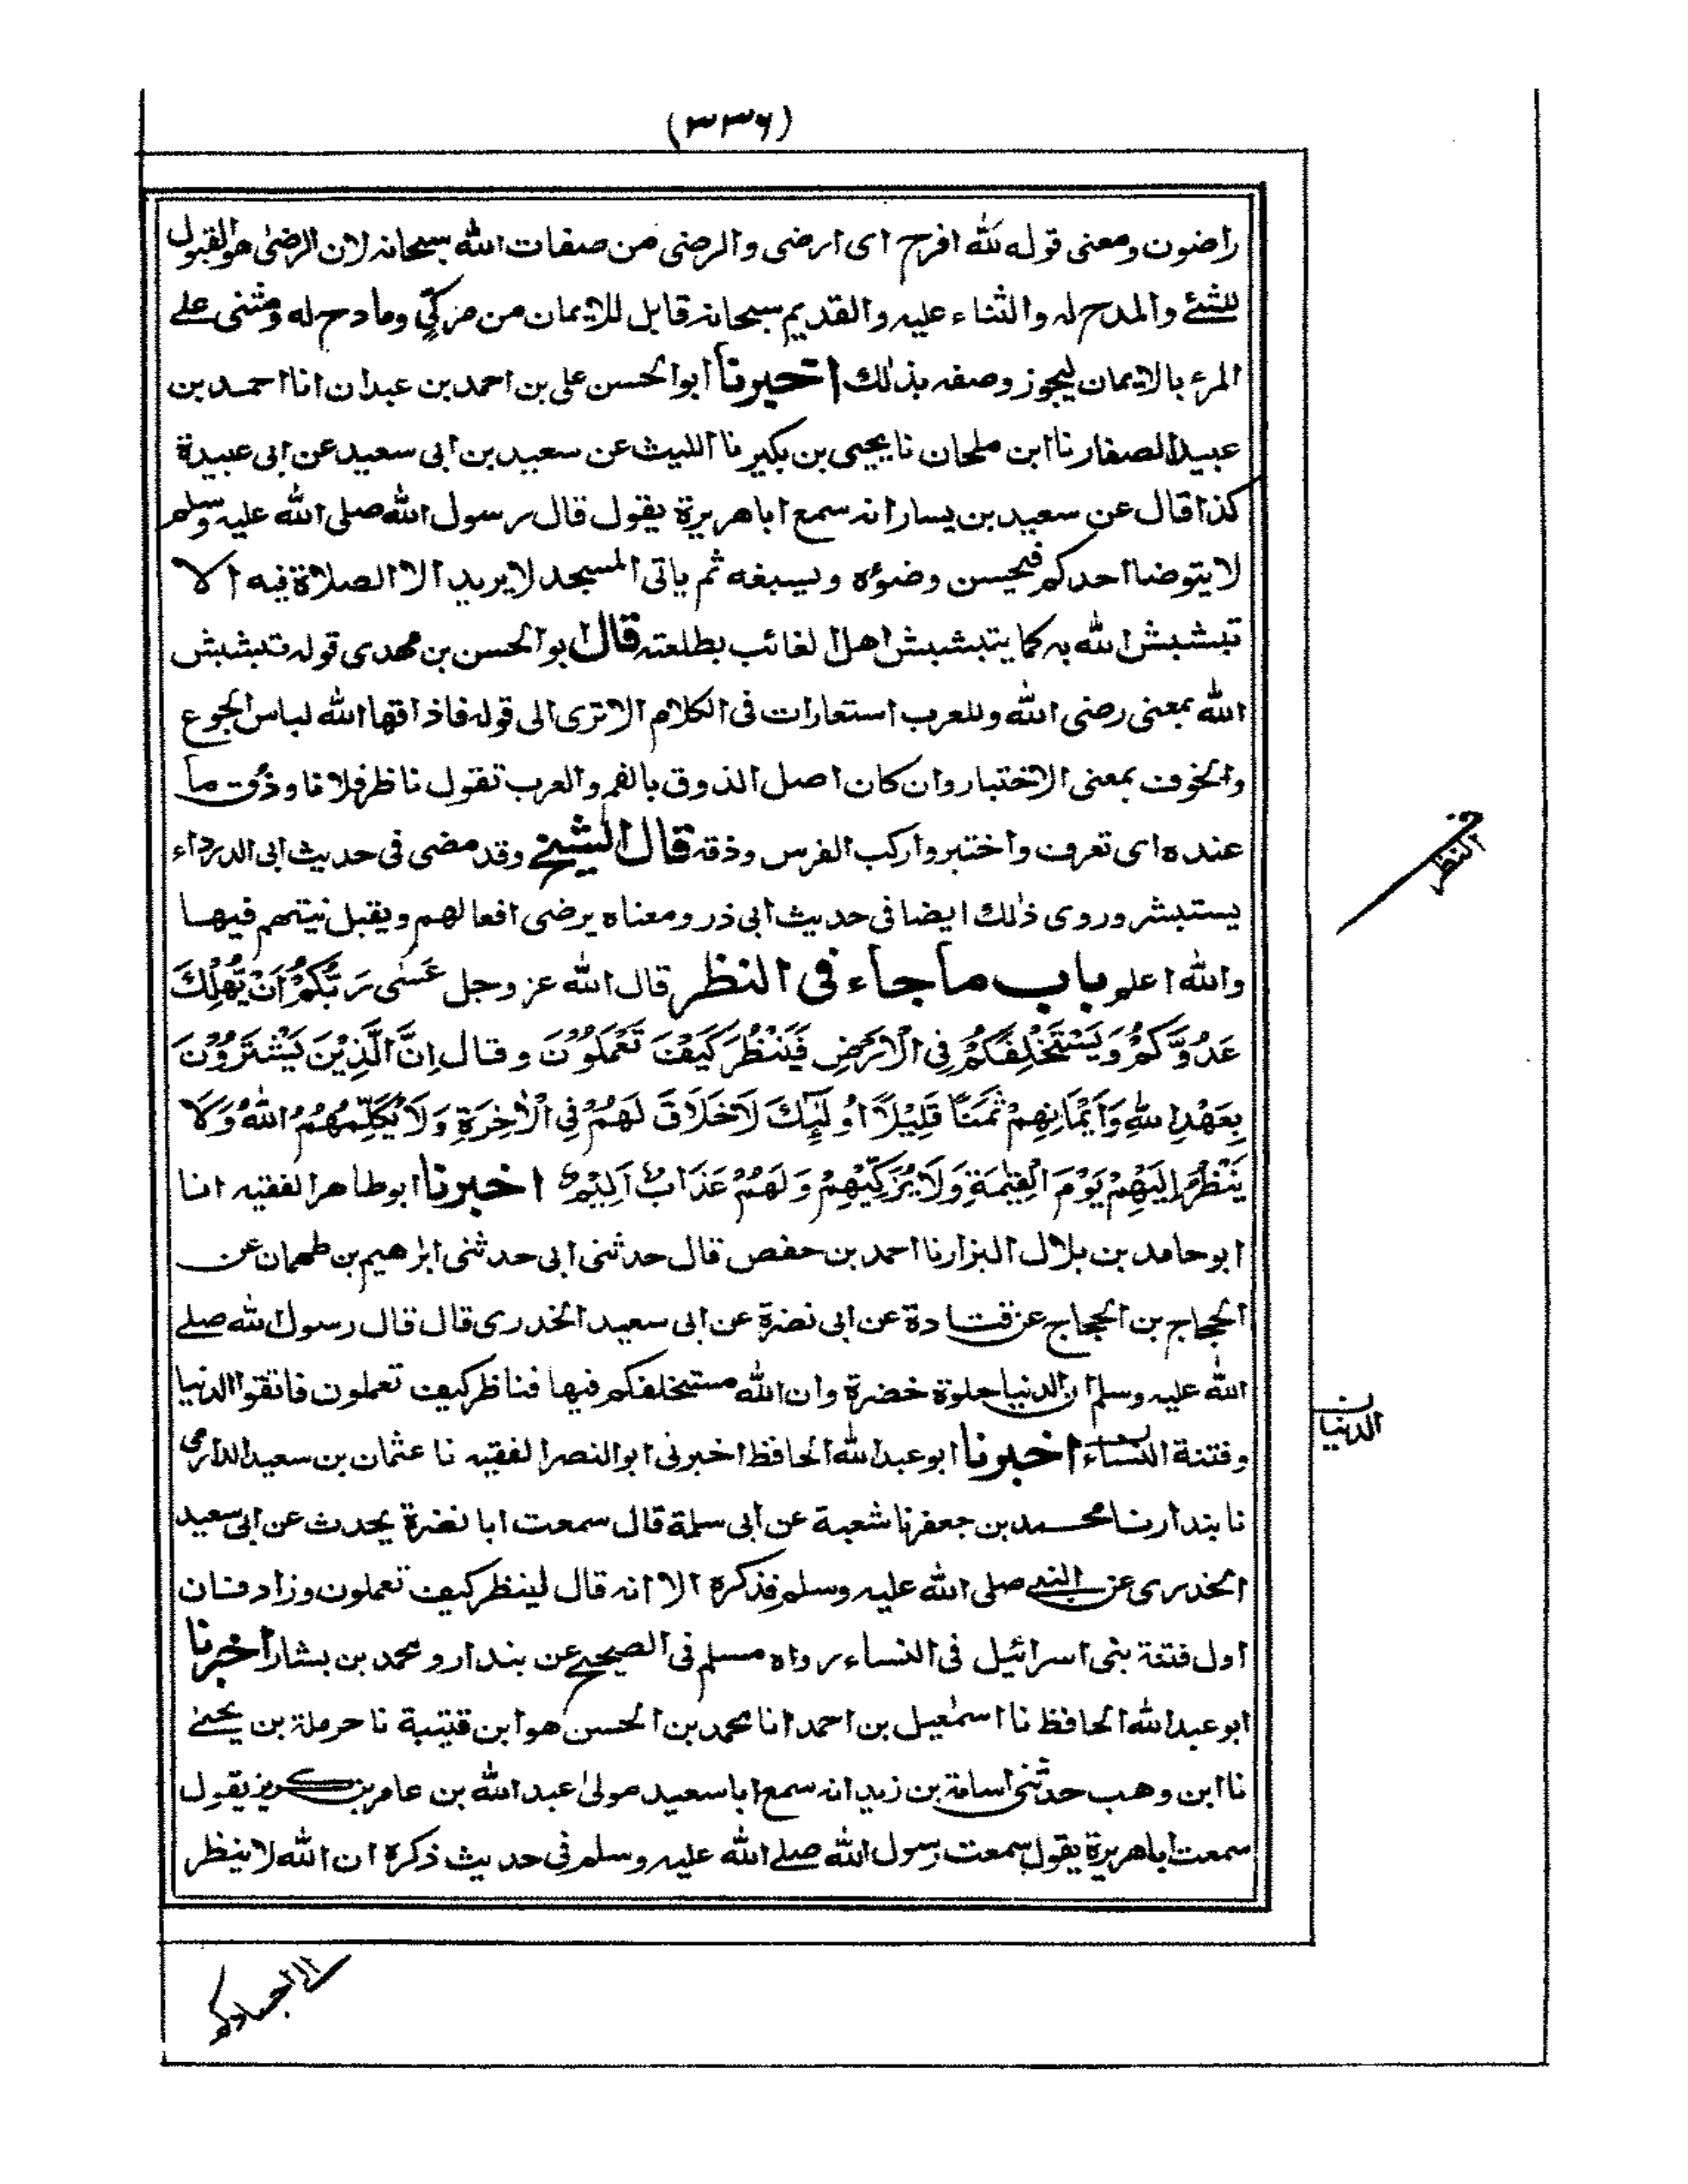 (٣٣٦)
راضون ومعنى قوله لله افرح اى ارضى والرضى من صفات الله سبحانه لان الرضى هو القبول
للشئ والمدح له والثناء عليه والقديم سبحانه قابل للايمان من مزكى ومادح له ومثنى على
المرء بالايمان ليجوز وصفه بذلك اخبرنا ابو الحسن على بن احمد بن عبدان انا احمد بن
عبيد الصفار نا ابن ملحان نا يحيى بن بكير نا الليث عن سعيد بن ابى سعيد عن ابى عبيدة
كذا قال عن سعيد بن يسار انه سمع ابا هريرة يقول قال رسول الله صلى الله عليه وسلم
لا يتوضا احدكم فيحسن وضوءه ويسبغه ثم ياتى المسجد لا يريد الا الصلاة فيه الا
تبشبش الله به كما يتبشبش اهل الغائب بطلعته قال ابو الحسن بن مهدى قوله تبشبش
الله بمعنى رضى الله وللعرب استعارات فى الكلام الا ترى الى قوله فاذاقها الله لباس الجوع
والخوف بمعنى الاختبار وان كان اصل الذوق بالفم والعرب تقول ناظر فلانا وذق ما
عنده اى تعرف واختبر واركب الفرس وذقه قال الشيخ وقد مضى فى حديث ابى الدرداء
يستبشر وروى ذلك ايضا فى حديث ابى ذر ومعناه يرضى افعالهم ويقبل نيتهم فيها
والله اعلم باب ما جاء فى النظر قال الله عز وجل عَسٰى رَبُّكُمْ اَنْ يُّهْلِكَ
عَدُوَّكُمْ وَيَسْتَخْلِفَكُمْ فِى الْاَرْضِ فَيَنْظُرَ كَيْفَ تَعْمَلُوْنَ وقال اِنَّ الَّذِيْنَ يَشْتَرُوْنَ
بِعَهْدِ اللهِ وَاَيْمَانِهِمْ ثَمَنًا قَلِيْلًا اُولٰئِكَ لَا خَلَاقَ لَهُمْ فِى الْاٰخِرَةِ وَلَا يُكَلِّمُهُمُ اللهُ وَلَا
يَنْظُرُ اِلَيْهِمْ يَوْمَ الْقِيٰمَةِ وَلَا يُزَكِّيْهِمْ وَلَهُمْ عَذَابٌ اَلِيْمٌ اخبرنا ابو طاهر الفقيه انا
ابو حامد بن بلال البزار نا احمد بن حفص قال حدثنى ابى حدثنى ابراهيم بن طهمان عن
الحجاج بن الحجاج عن قتادة عن ابى نضرة عن ابى سعيد الخدرى قال قال رسول الله صلے
الله عليه وسلم ان الدنيا حلوة خضرة وان الله مستخلفكم فيها فناظر كيف تعملون فاتقوا الدنيا
وفتنة النساء اخبرنا ابو عبد الله الحافظ اخبرنى ابو النصر الفقيه نا عثمان بن سعيد الدارمى
نا بندار نا محمد بن جعفر نا شعبة عن ابى سلمة قال سمعت ابا نضرة يحدث عن ابى سعيد
الخدرى عن النبى صلى الله عليه وسلم فذكره الا انه قال لينظر كيف تعملون وزاد فان
اول فتنة بنى اسرائيل فى النساء رواه مسلم فى الصحيح عن بندار ومحمد بن بشار اخبرنا
ابو عبد الله الحافظ نا اسمٰعيل بن احمد انا محمد بن الحسن هو ابن قتيبة نا حرملة بن يحيى
نا ابن وهب حدثنى اسامة بن زيد انه سمع ابا سعيد مولى عبد الله بن عامر بن كريز يقول
سمعت ابا هريرة يقول سمعت رسول الله صلے الله عليه وسلم فى حديث ذكره ان الله لا ينظر
النظر
الدنيا
الى اجسادكم